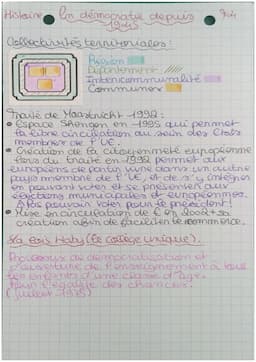 Histoire La démocratie depuis
1945
Collectivités territoriales :
Région
Département
Intercommunalité
Communes
Traité de Maastricht 1992 :
• Espace Shengen en 1995 qui permet
la libre circulation au sein des Etats
membres de l'UE.
• Création de la citoyenneté européenne
lors du traité en 1992 permet aux
européens de partir vivre dans un autre
pays membre de l'UE, et de s'y intégrer
en pouvant voter et se présenter aux
élections municipales et européennes.
pouvoir voter pour le président !
• Mise en circulation de l'€ en 2002 + sa
création afin de faciliter le commerce.
La Loi Haby (le collège unique).
Processus de démocratisation et
d'ouverture de l'enseignement à tous
les enfants d'une classe d'âge.
Pour l'égalité des chances.
(juillet 1975)